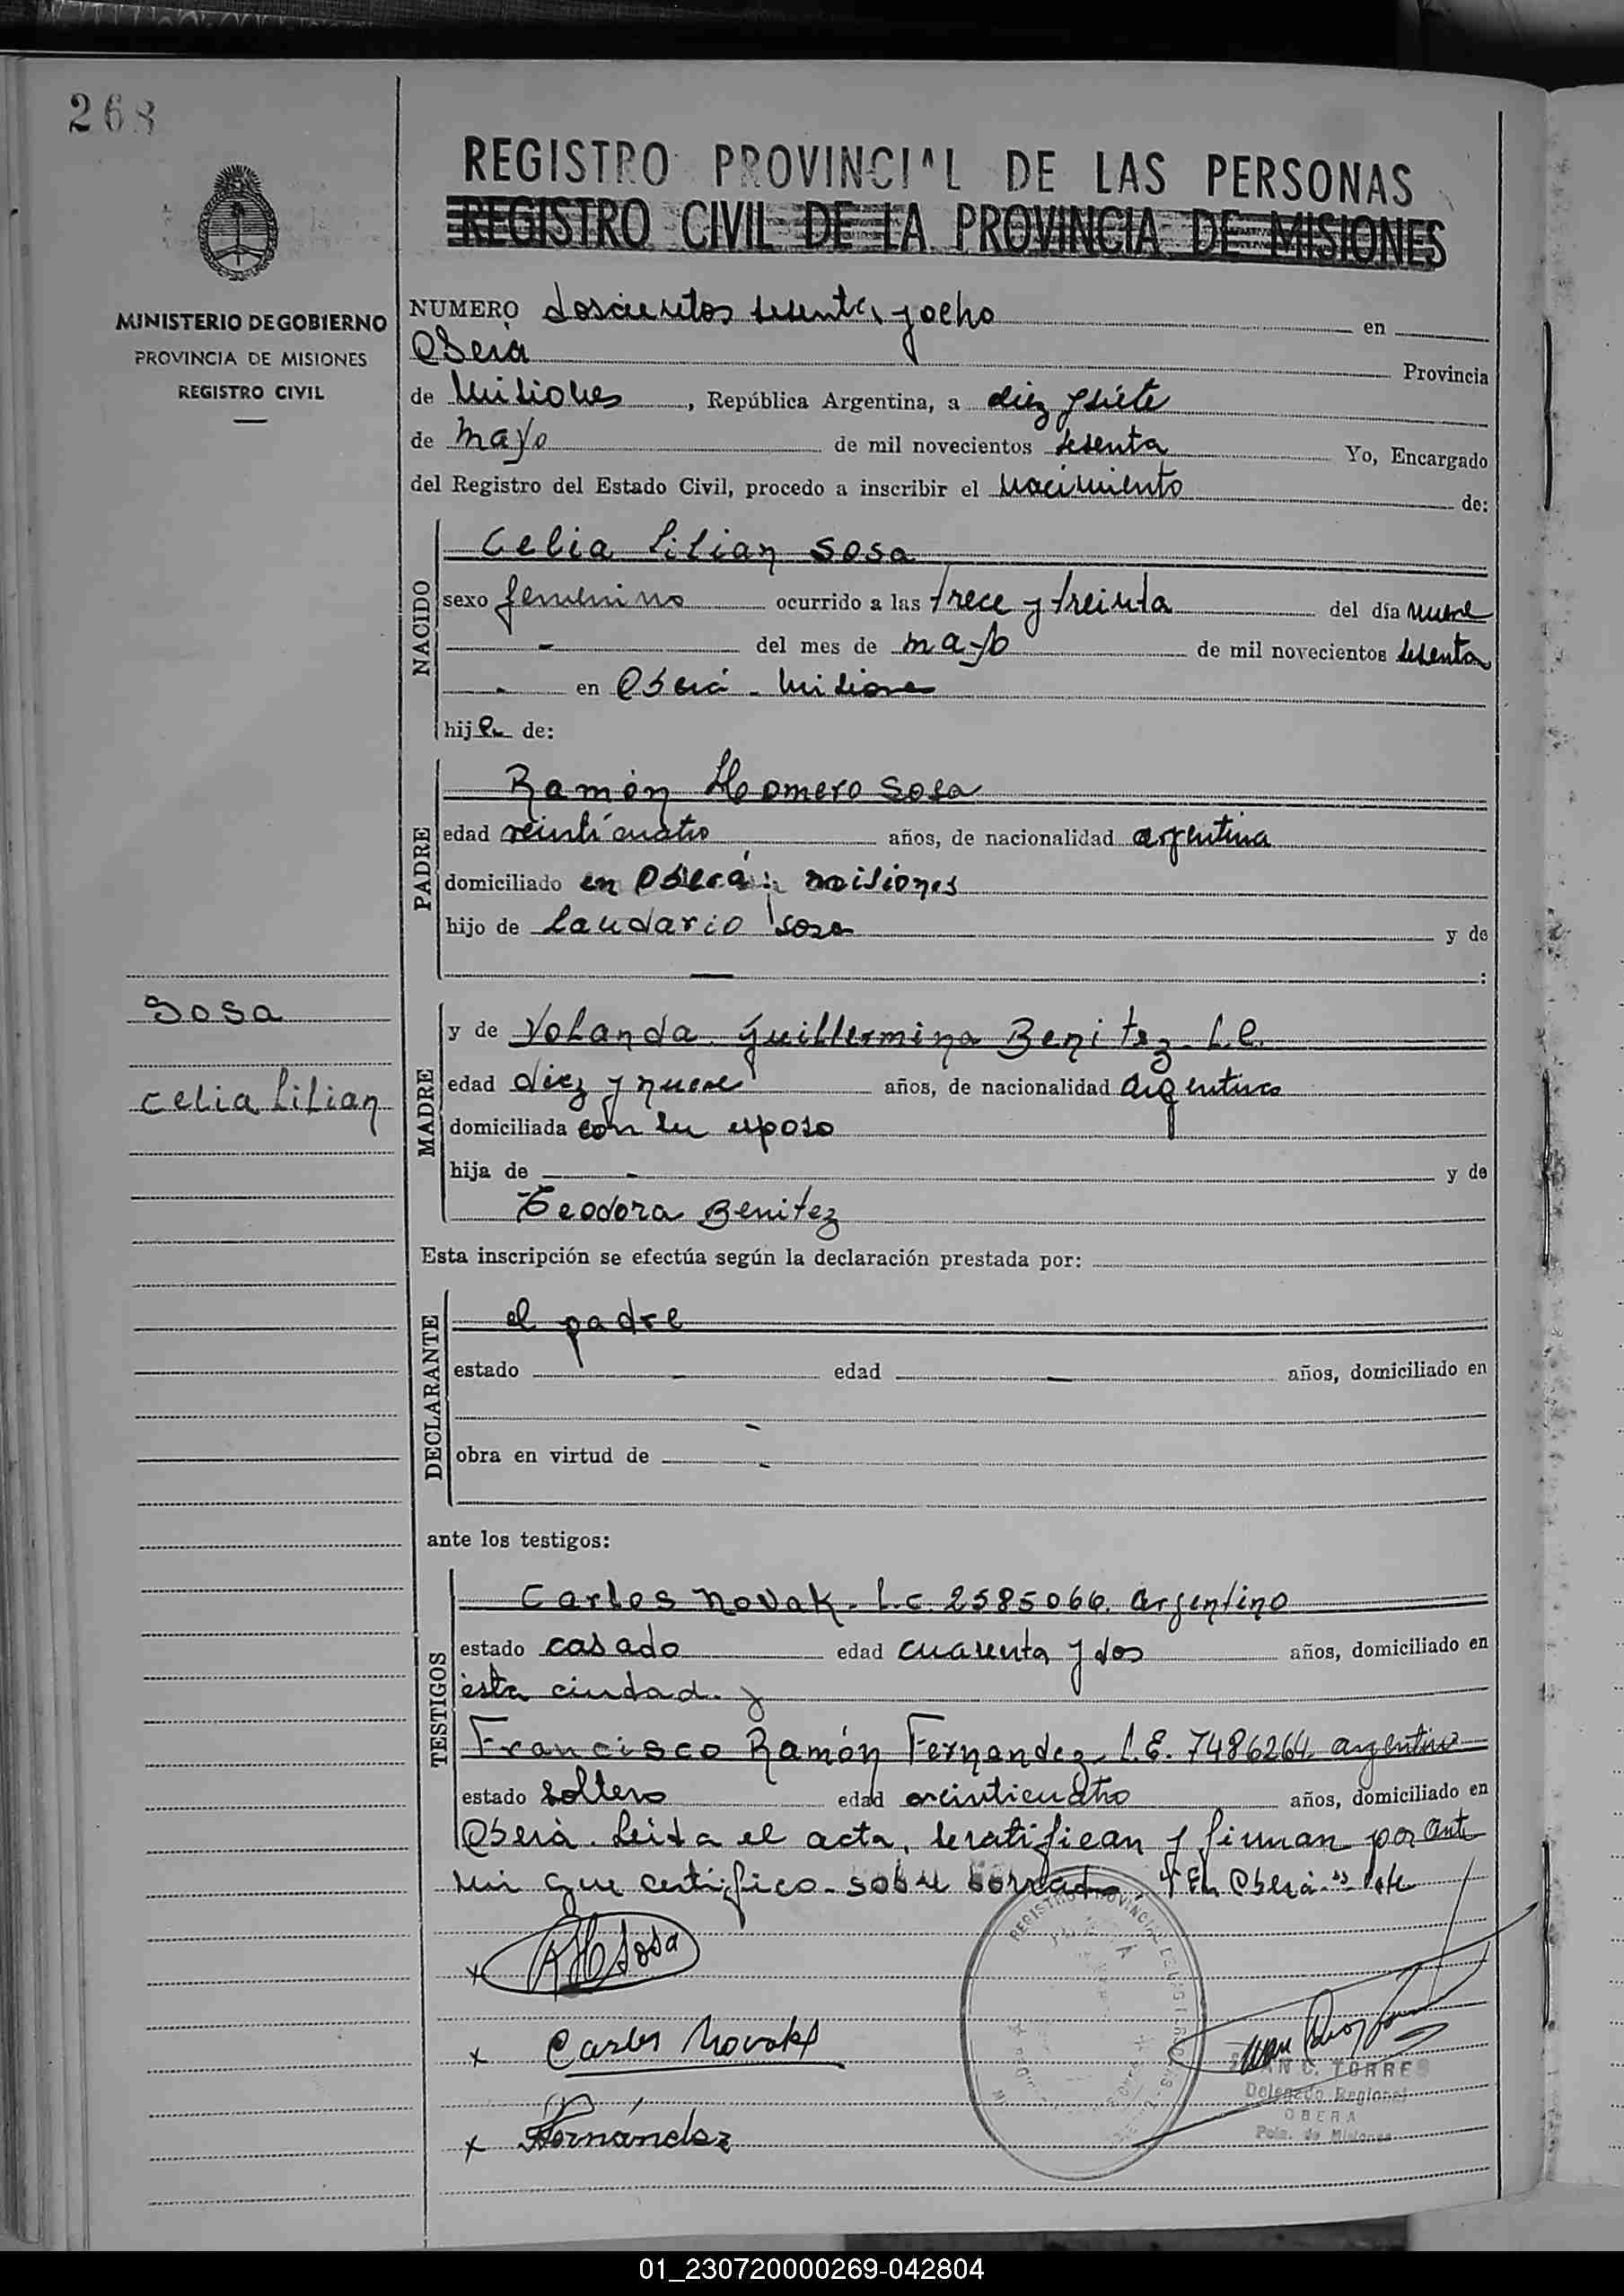 268
REGISTRO PROVINCIAL DE LAS PERSONAS
REGISTRO CIVIL DE LA PROVINCIA DE MISIONES
MINISTERIO DE GOBIERNO
PROVINCIA DE MISIONES
REGISTRO CIVIL
NUMERO doscientos sesenta y ocho en
Oberá Provincia
de Misiones, República Argentina, a diez y siete
de mayo de mil novecientos sesenta Yo, Encargado
del Registro del Estado Civil, procedo a inscribir el nacimiento de:
NACIDO
Celia Lilian Sosa
sexo femenino ocurrido a las trece y treinta del día nueve
- del mes de mayo de mil novecientos sesenta
- en Oberá - Misiones
hija de:
PADRE
Ramón Homero Sosa
edad veinticuatro años, de nacionalidad argentina
domiciliado en Oberá: misiones
hijo de Laudario Sosa y de
— :
Sosa
Celia Lilian
MADRE
y de Yolanda Guillermina Benitez L.C.
edad diez y nueve años, de nacionalidad argentina
domiciliada con su esposo
hija de - y de
Teodora Benitez
Esta inscripción se efectúa según la declaración prestada por:
DECLARANTE
el padre
estado - edad — años, domiciliado en
-
obra en virtud de -
ante los testigos:
TESTIGOS
Carlos Novak. L.C. 2585066. argentino
estado casado edad cuarenta y dos años, domiciliado en
ésta ciudad. y
Francisco Ramón Fernandez L.E. 7486264 argentino
estado soltero edad veinticuatro años, domiciliado en
Oberá. Leida el acta, se ratifican y firman por ante
mi que certifico. Sobre borrado. "En Oberá" Vale
RHSosa
x Carlos Novak
x Fernández
REGISTRO PROVINCIAL DE LAS PERSONAS
JUAN C. TORRES
Delegado Regional
OBERA
Pcia. de Misiones
01_230720000269-042804